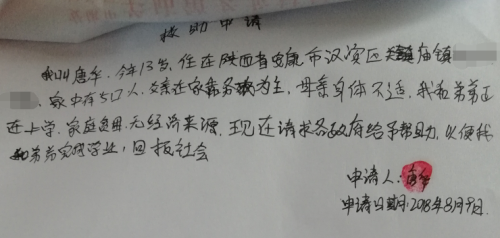 救助申请
我叫唐华，今年13岁，住在陕西省安康市汉滨区关庙镇
，家中有5口人，父亲在家务农为主，母亲身体不适，我和弟弟正
在上学，家庭贫困，无经济来源，现在请求各政府给予帮助，以便我
和弟弟完成学业，回报社会
申请人：
申请日期：2018年8月9日